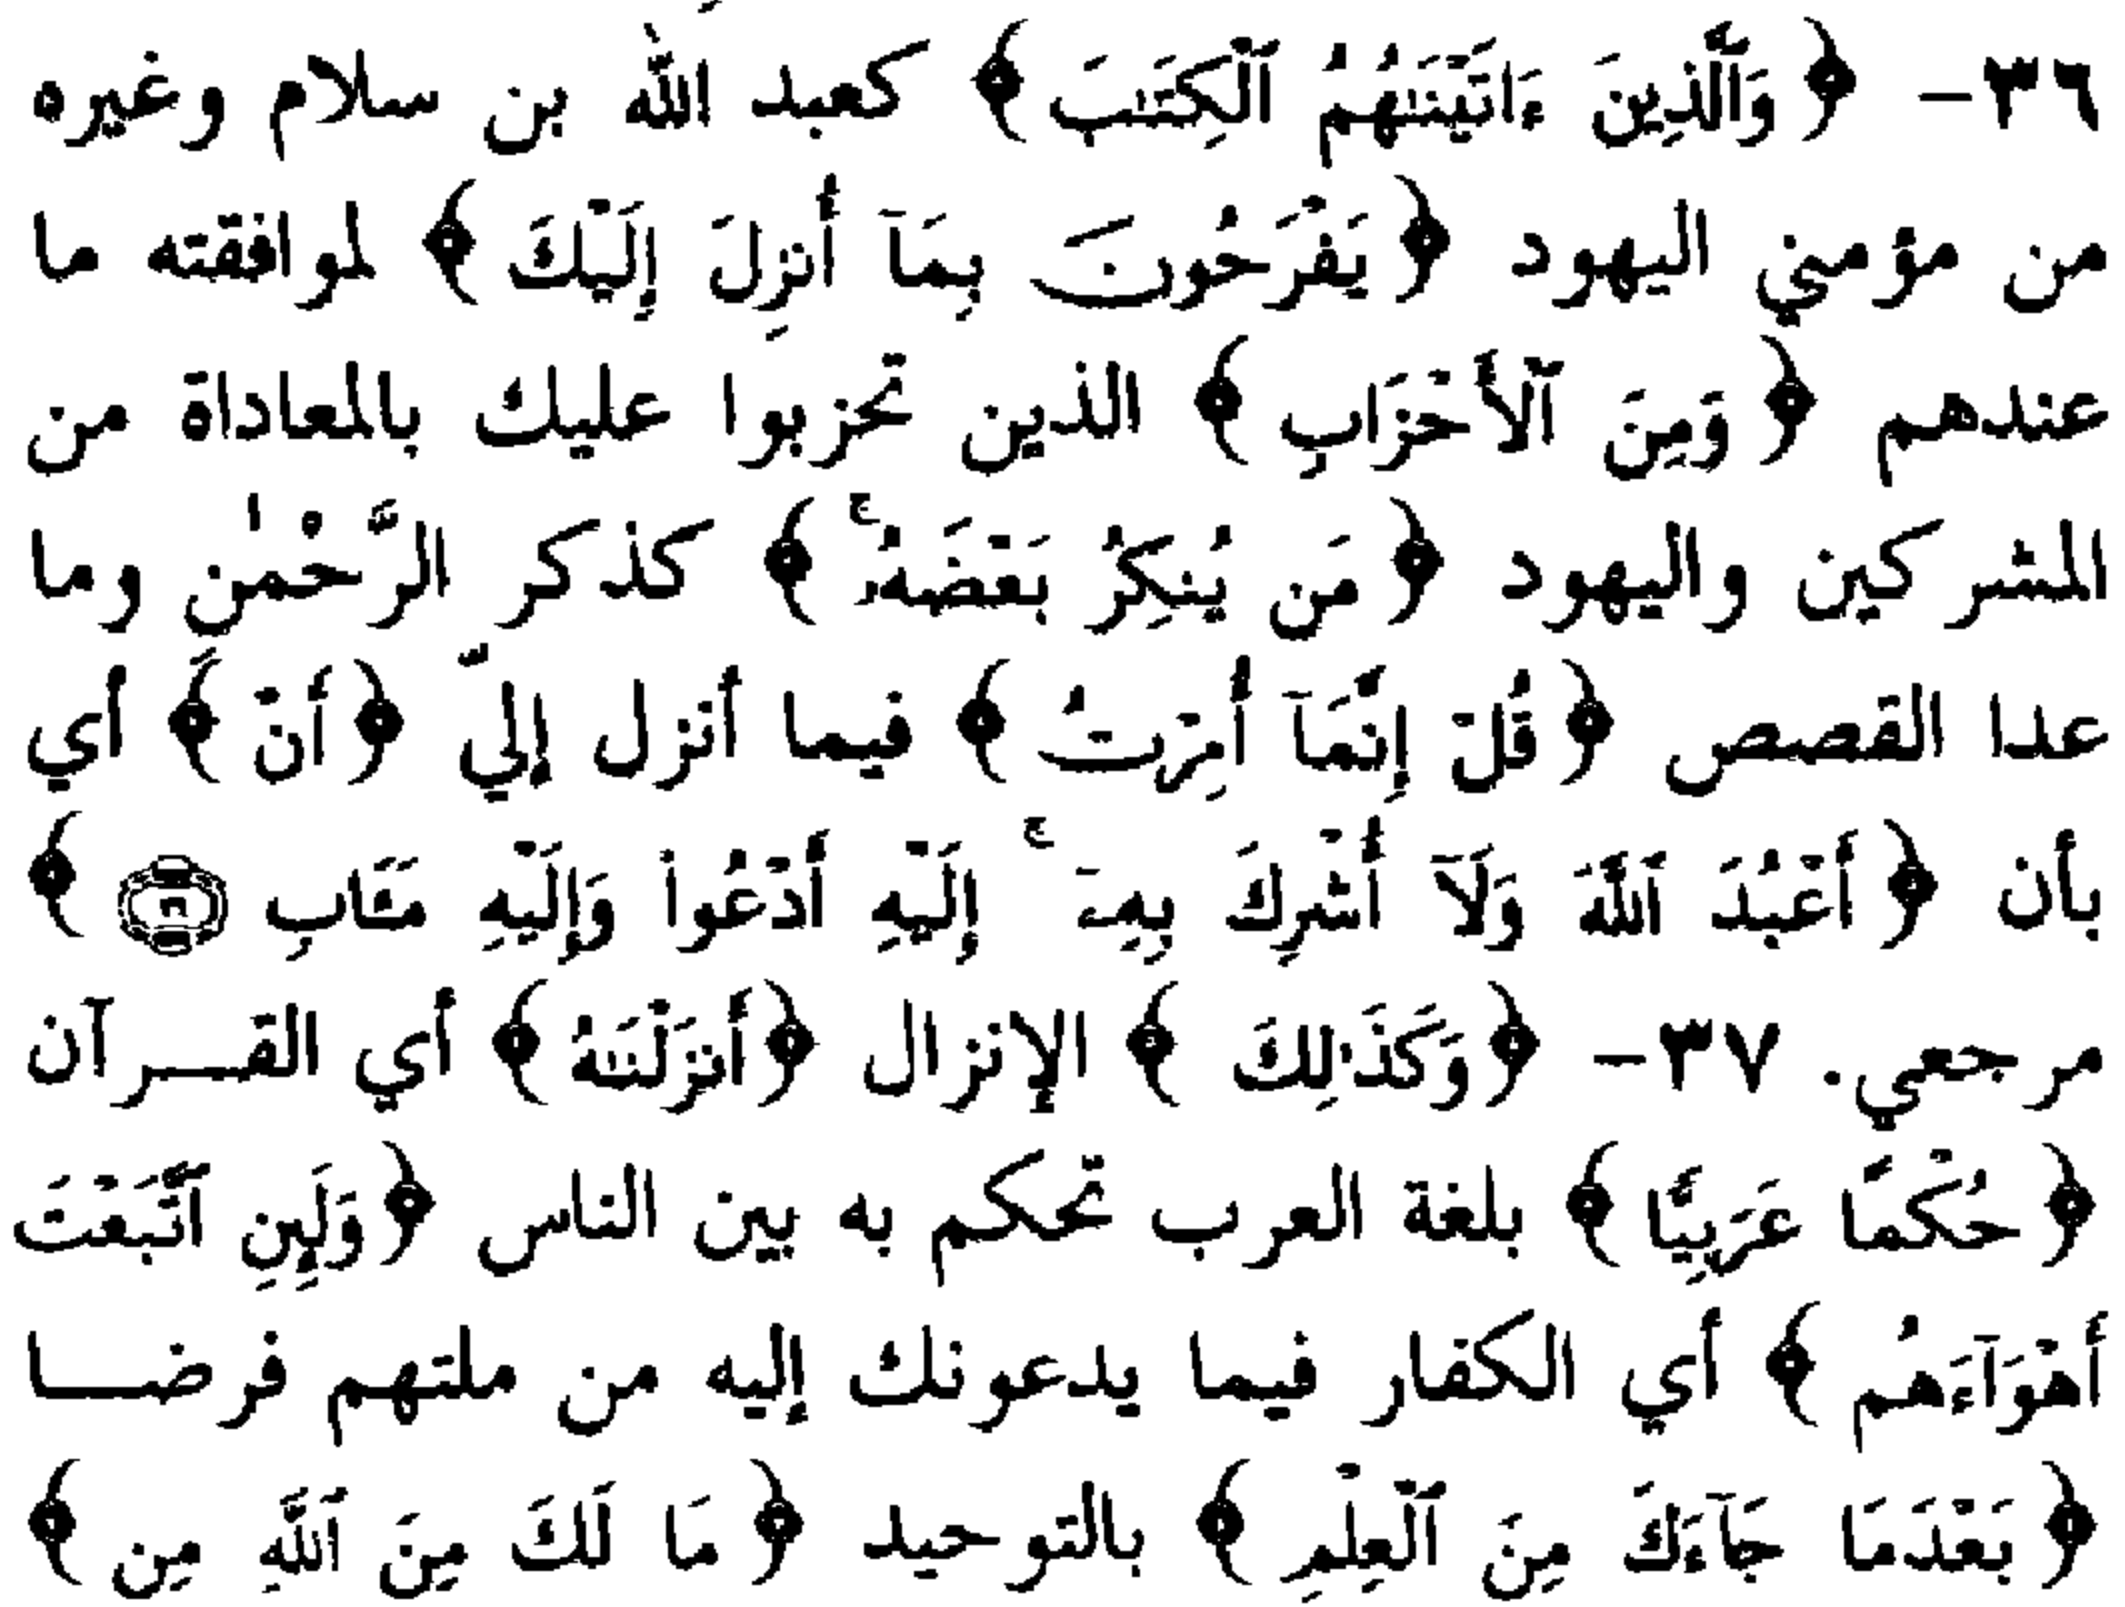 ٣٦- ﴿ وَٱلَّذِينَ ءَاتَيْنَٰهُمُ ٱلْكِتَٰبَ ﴾ كعبد الله بن سلام وغيره
من مؤمني اليهود ﴿ يَفْرَحُونَ بِمَآ أُنزِلَ إِلَيْكَ ﴾ لموافقته ما
عندهم ﴿ وَمِنَ ٱلْأَحْزَابِ ﴾ الذين تحزبوا عليك بالمعاداة من
المشركين واليهود ﴿ مَن يُنكِرُ بَعْضَهُۥ ۚ ﴾ كذكر الرَّحْمٰن وما
عدا القصص ﴿ قُلْ إِنَّمَآ أُمِرْتُ ﴾ فيما أنزل إليّ ﴿ أَنْ ﴾ أي
بأن ﴿ أَعْبُدَ ٱللَّهَ وَلَآ أُشْرِكَ بِهِۦٓ ۚ إِلَيْهِ أَدْعُوا۟ وَإِلَيْهِ مَـَٔابِ ٣٦ ﴾
مرجعي. ٣٧- ﴿ وَكَذَٰلِكَ ﴾ الإنزال ﴿ أَنزَلْنَٰهُ ﴾ أي القـــرآن
﴿ حُكْمًا عَرَبِيًّا ﴾ بلغة العرب تحكم به بين الناس ﴿ وَلَئِنِ ٱتَّبَعْتَ
أَهْوَآءَهُم ﴾ أي الكفار فيما يدعونك إليه من ملتهم فرضـــا
﴿ بَعْدَمَا جَآءَكَ مِنَ ٱلْعِلْمِ ﴾ بالتوحيد ﴿ مَا لَكَ مِنَ ٱللَّهِ مِن ﴾